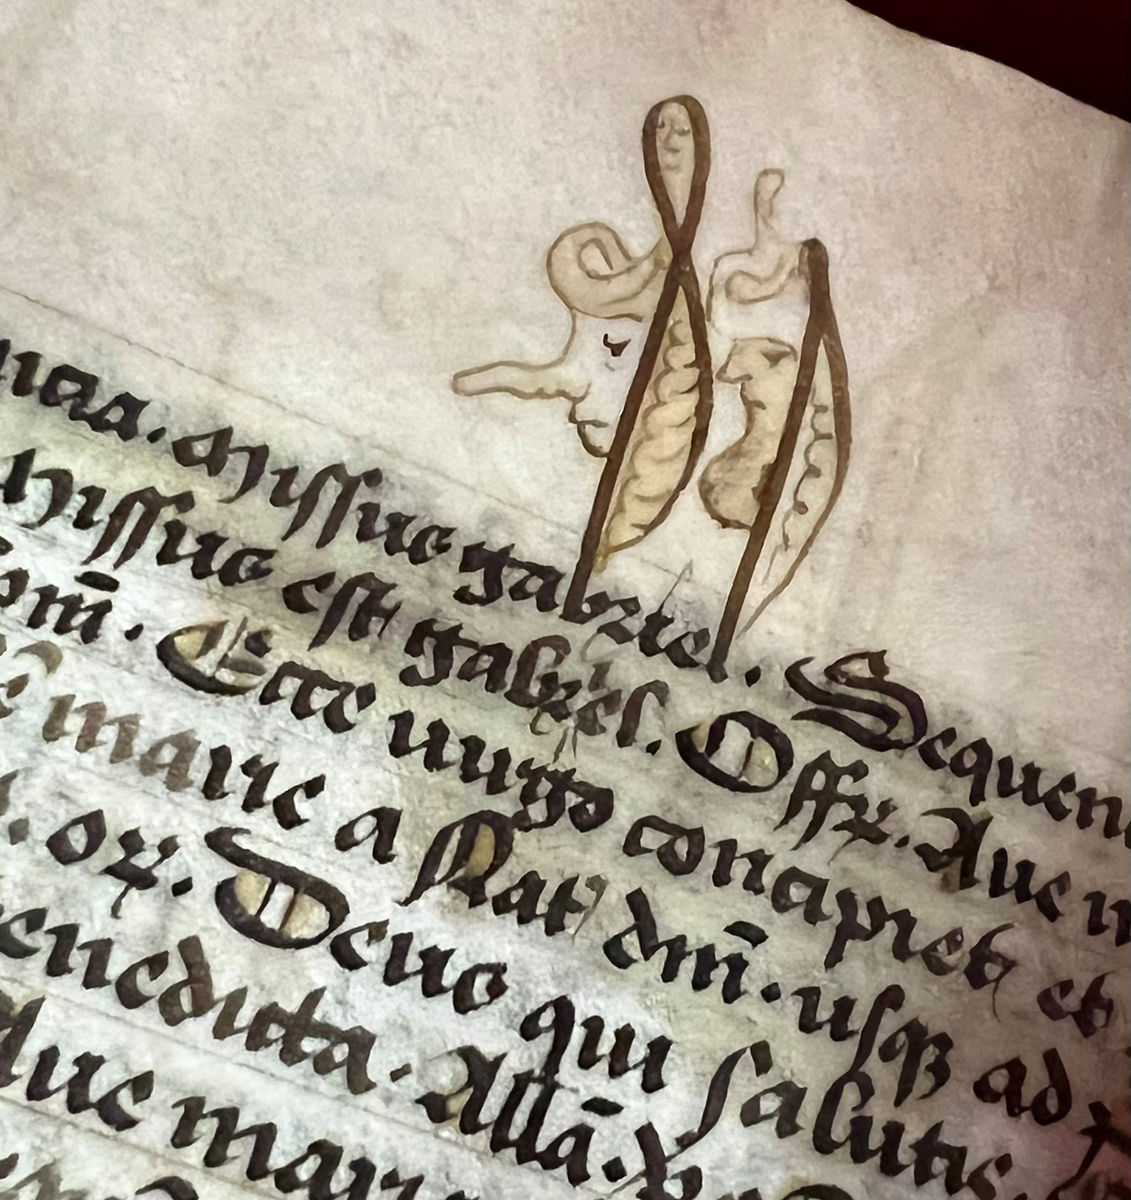 Missus gabriel. Sequen
Missus est gabriel. Off͞r. Aue
om̄. Ecce uirgo concipiet et
marie a Nat dm̄. usqꝫ ad
or. Deus qui salutis
enedicta. All̄a.
Aue mari